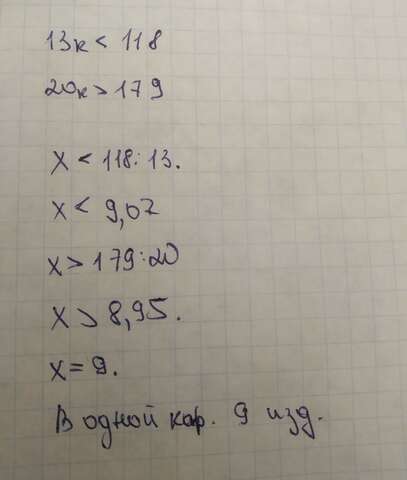 13к < 118
20к > 179
x < 118:13.
x < 9,07
x > 179:20
x > 8,95.
x = 9.
В одной кор. 9 изд.